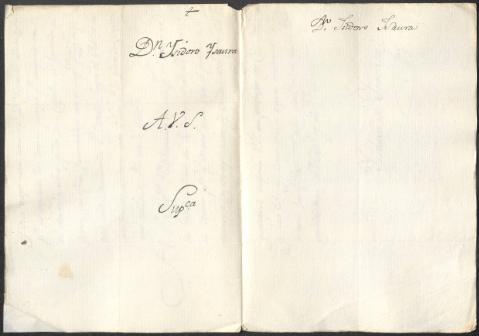 +
Dn. Ysidoro Ysaura
A. V. S.
Supca
Dn. Isidoro Isaura